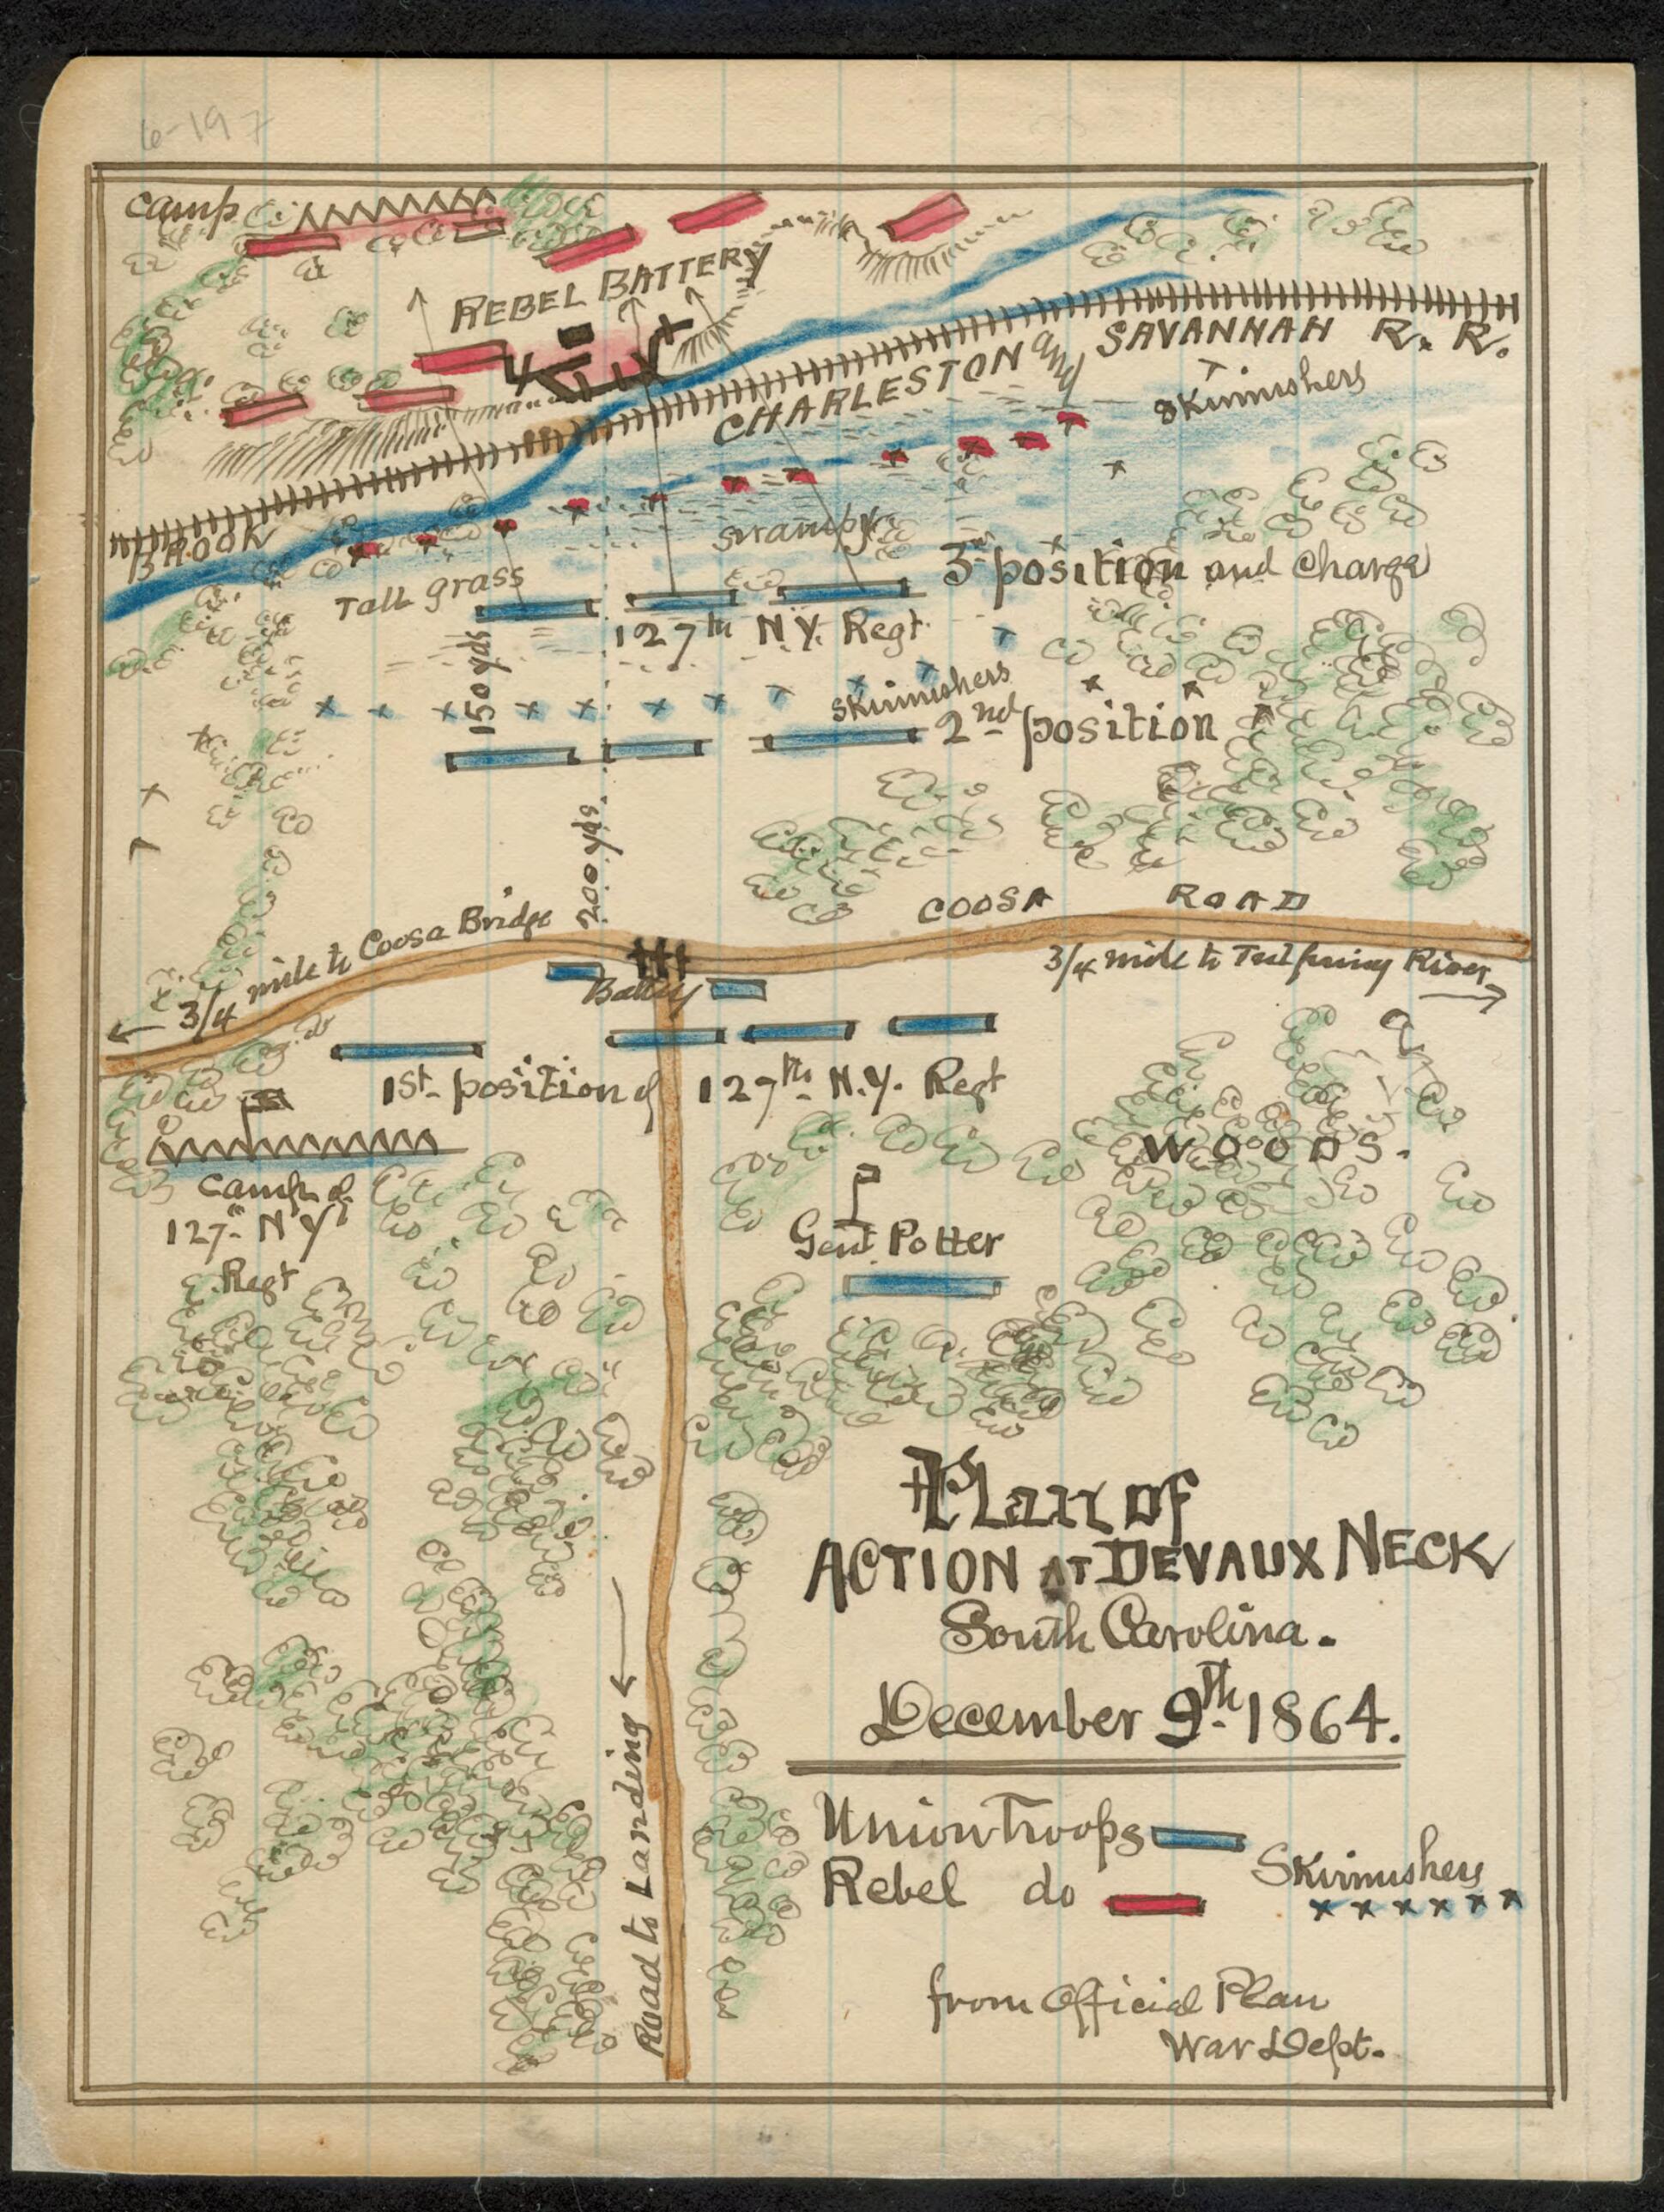 6-197
Camp
REBEL BATTERY
CHARLESTON and SAVANNAH R. R.
Skirmishers
BROOK
Swampy
Tall grass
3d position and Charge
127th N.Y. Regt.
150 yds
Skirmishers
2nd position
200 yds.
COOSA ROAD
3/4 mile to Coosa Bridge
3/4 mile to River
Battery
1st position of 127th N.Y. Regt
WOODS.
Camp of
127th N Y
Regt
Genl. Potter
Plan of
ACTION AT DEVAUX NECK
South Carolina.
December 9th 1864.
Union Troops
Rebel do
Skirmishers
Road to Landing
from Official Plan
War Dept.